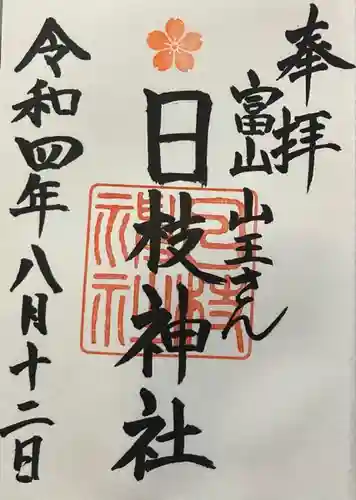 奉拝
富山
山王さん
日枝神社
令和四年八月十二日
日枝神社